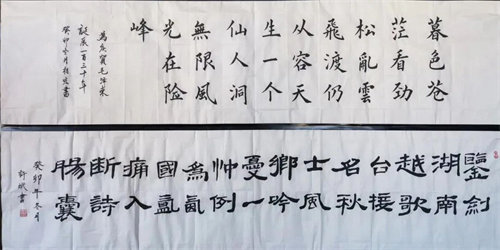 暮色苍
茫看劲
松亂雲
飛渡仍
从容天
生一个
仙人洞
無限風
光在险
峰
為庆賀毛泽東
誕辰一百三十年
癸卯冬月
鑒湖越台名士鄉憂忡為國痛断腸
劍南歌接秋風吟一例氤氲入詩囊
癸卯年冬月